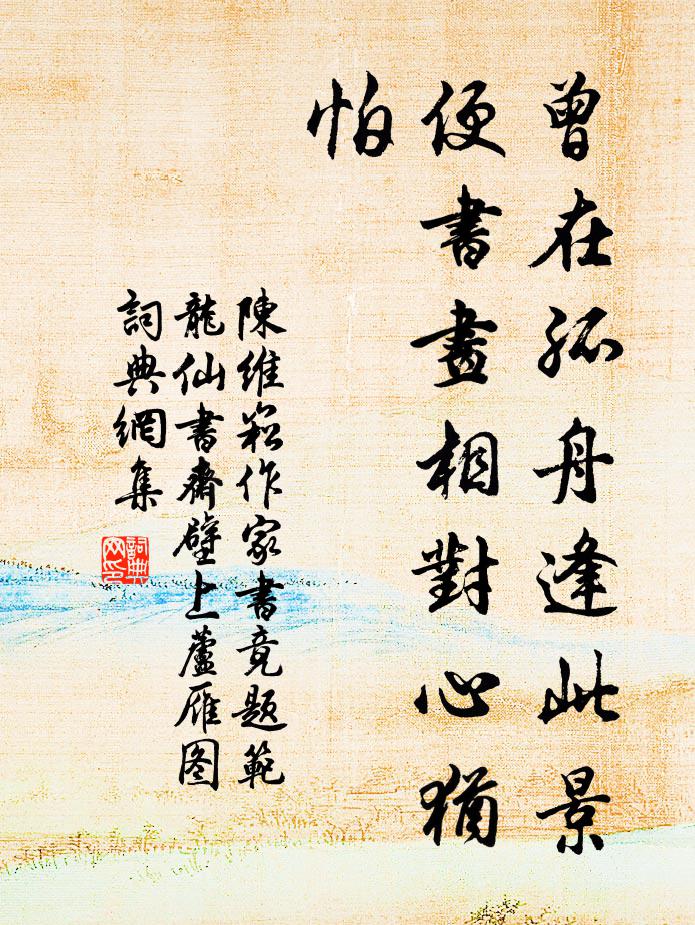 曾在孤舟逢此景
便書畫相對心猶
怕
陳維崧作家書竟題範
龍仙書齋壁上蘆雁图
詞典網集
詞典
网印